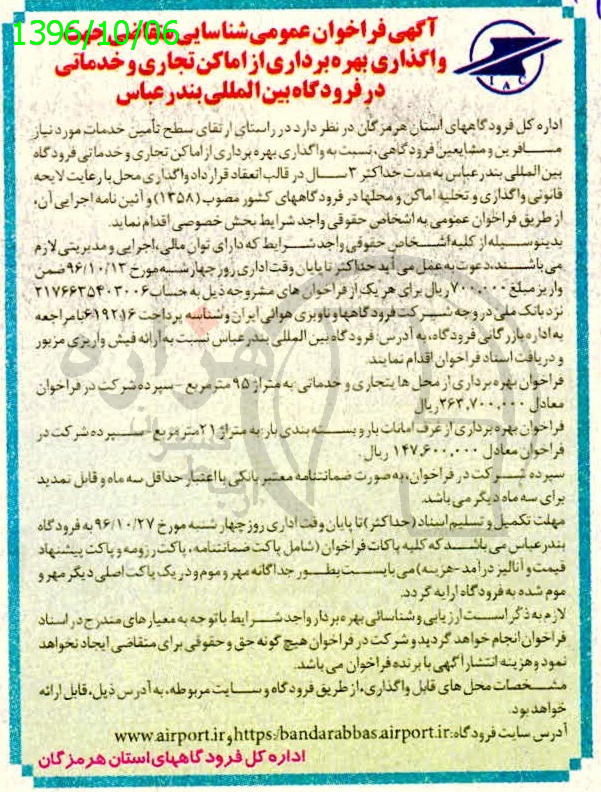 1396/10/06
آگهی فراخوان عمومی شناسایی متقاضی جهت
واگذاری بهره برداری از اماکن تجاری و خدماتی
در فرودگاه بین المللی بندرعباس
IAC
اداره کل فرودگاههای استان هرمزگان در نظر دارد در راستای ارتقای سطح تأمین خدمات مورد نیاز
مسافرین و مشایعین فرودگاهی، نسبت به واگذاری بهره برداری از اماکن تجاری و خدماتی فرودگاه
بین المللی بندرعباس به مدت حداکثر ۳ سال در قالب انعقاد قرارداد واگذاری محل با رعایت لایحه
قانونی واگذاری و تخلیه اماکن و محلها در فرودگاههای کشور مصوب (۱۳۵۸) و آئین نامه اجرایی آن،
از طریق فراخوان عمومی به اشخاص حقوقی واجد شرایط بخش خصوصی اقدام نماید.
بدینوسیله از کلیه اشخاص حقوقی واجد شرایط که دارای توان مالی، اجرایی و مدیریتی لازم
می باشند، دعوت به عمل می آید حداکثر تا پایان وقت اداری روز چهارشنبه مورخ ۹۶/۱۰/۱۳ ضمن
واریز مبلغ ۷۰۰,۰۰۰ ریال برای هر یک از فراخوان های مشروحه ذیل به حساب ۲۱۷۶۶۳۵۴۰۳۰۰۶
نزد بانک ملی در وجه شرکت فرودگاهها و ناوبری هوائی ایران و شناسه پرداخت ۶۱۹۲۱۶ با مراجعه
به اداره بازرگانی فرودگاه، به آدرس: فرودگاه بین المللی بندرعباس نسبت به ارائه فیش واریزی مزبور
و دریافت اسناد فراخوان اقدام نمایند.
فراخوان بهره برداری از محل ها یتجاری و خدماتی به متراژ ۹۵ مترمربع - سپرده شرکت در فراخوان
معادل ۲۶۳,۷۰۰,۰۰۰ ریال
فراخوان بهره برداری از غرف امانات بار و بسته بندی بار: به متراژ ۲۱ مترمربع - سپرده شرکت در
فراخوان معادل ۱۴۷,۶۰۰,۰۰۰ ریال.
سپرده شرکت در فراخوان، به صورت ضمانتنامه معتبر بانکی با اعتبار حداقل سه ماه و قابل تمدید
برای سه ماه دیگر می باشد.
مهلت تکمیل و تسلیم اسناد (حداکثر) تا پایان وقت اداری روز چهارشنبه مورخ ۹۶/۱۰/۲۷ به فرودگاه
بندرعباس می باشد که کلیه پاکات فراخوان (شامل پاکت ضمانتنامه، پاکت رزومه و پاکت پیشنهاد
قیمت و آنالیز درآمد - هزینه) می بایست بطور جداگانه مهر و موم و در یک پاکت اصلی دیگر مهر و
موم شده به فرودگاه ارایه گردد.
لازم به ذکر است ارزیابی و شناسائی بهره بردار واجد شرایط با توجه به معیارهای مندرج در اسناد
فراخوان انجام خواهد گردید و شرکت در فراخوان هیچ گونه حق و حقوقی برای متقاضی ایجاد نخواهد
نمود و هزینه انتشار آگهی با برنده فراخوان می باشد.
مشخصات محل های قابل واگذاری، از طریق فرودگاه و سایت مربوطه، به آدرس ذیل، قابل ارائه
خواهد بود.
آدرس سایت فرودگاه: https:/bandarabbas.airport.ir و www.airport.ir
اداره کل فرودگاههای استان هرمزگان